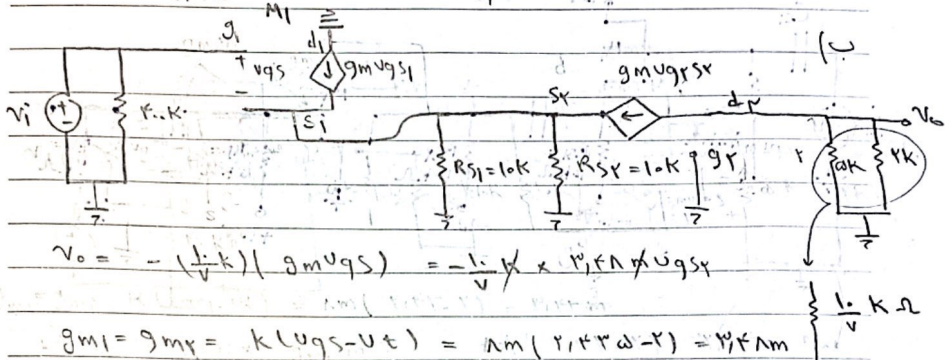 M1
g1
d1
+
vgs
-
gmvgs1
s1
ب)
gmvgs۲
s۲
d۲
Vo
Vi
۲۰۰k
RS1=10k
RS۲=10k
g۲
۵k
۲k
Vo = -(۱۰/۷ k)(gmvgs) = -۱۰/۷ k × ۳,۴۸ m vgs۲
۱۰/۷ k Ω
gm1 = gm۲ = k(vgs-vt) = ۸m(۲,۴۳۵-۲) = ۳,۴۸m